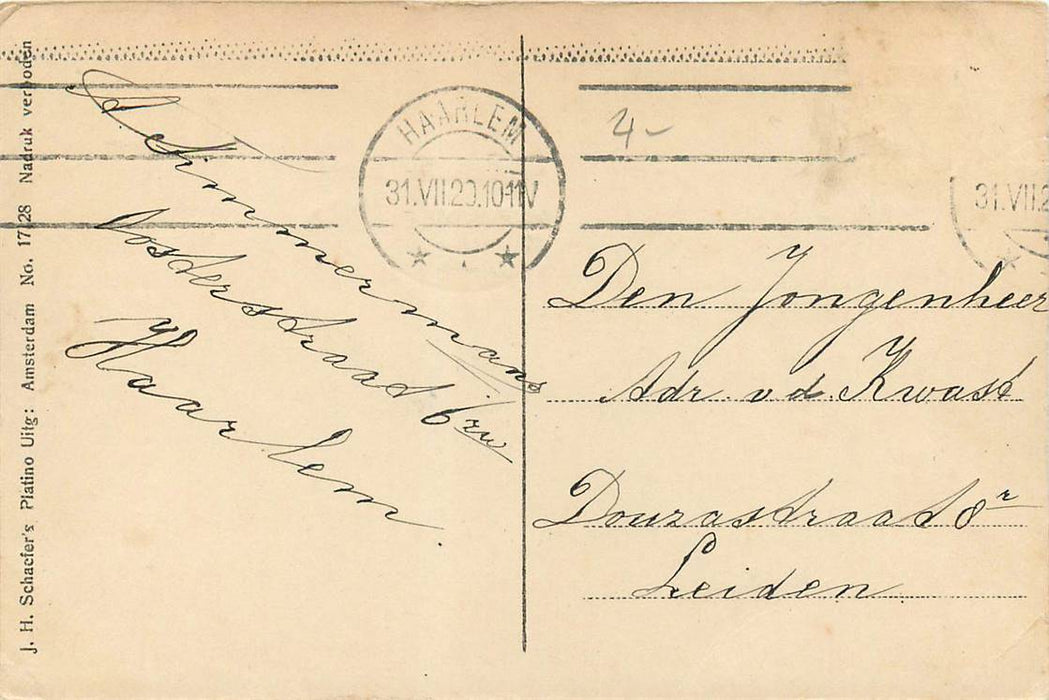 J. H. Schaefer's Platino Uitg: Amsterdam No. 17128 Nadruk verboden
A. Timmermans
Oosterstraat 6 rw
Haarlem
HAARLEM
31.VII.20.10-11V
4-
31.VII.2
Den Jongenheer
Adr v d. Kwast
Douzastraat 8r
Leiden